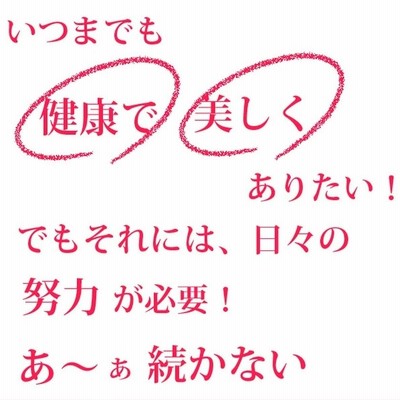 いつまでも
健康で 美しく
ありたい！
でもそれには、日々の
努力 が必要！
あ～ぁ 続かない